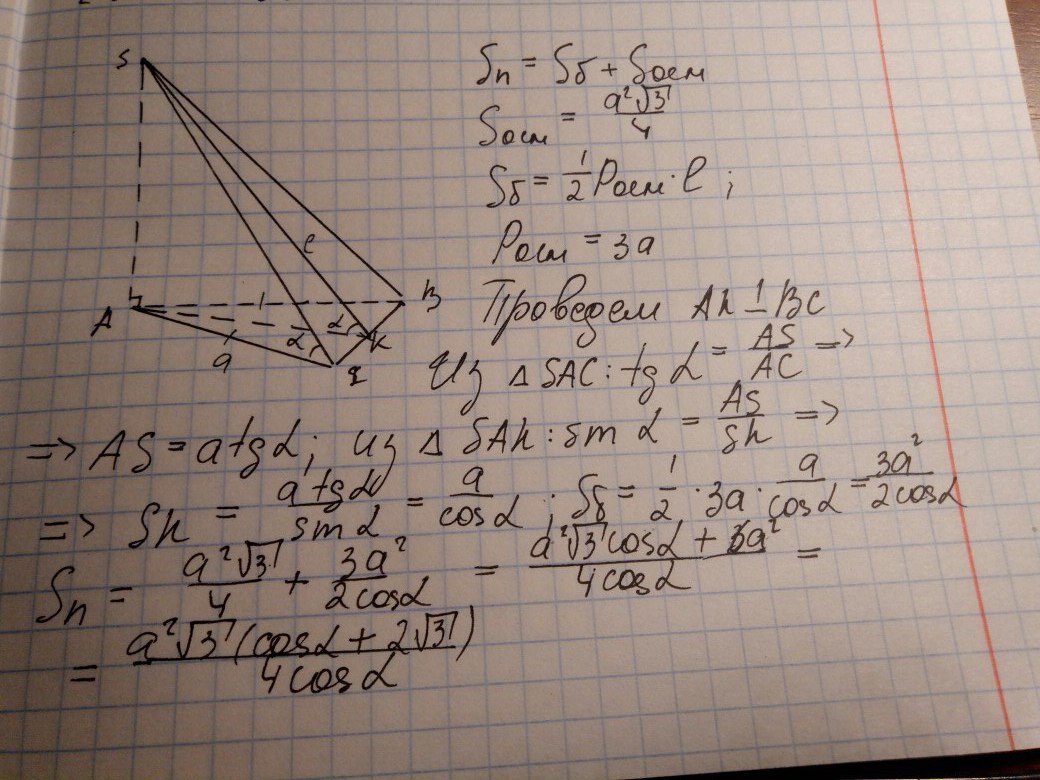 S
A
B
C
K
a
l
α
α
Sп = Sб + Sосн
Sосн = a²√3/4
Sб = 1/2 Pосн · l ;
Pосн = 3a
Проведем AK ⊥ BC
Из △ SAC: tg α = AS/AC =>
=> AS = a tg α; из △ SAK: sin α = AS/SK =>
=> SK = a tg α/sin α = a/cos α ; Sб = 1/2 · 3a · a/cos α = 3a²/2cos α
Sп = a²√3/4 + 3a²/2cos α = a²√3 cos α + 6a²/4cos α =
= a²√3 (cos α + 2√3)/4cos α